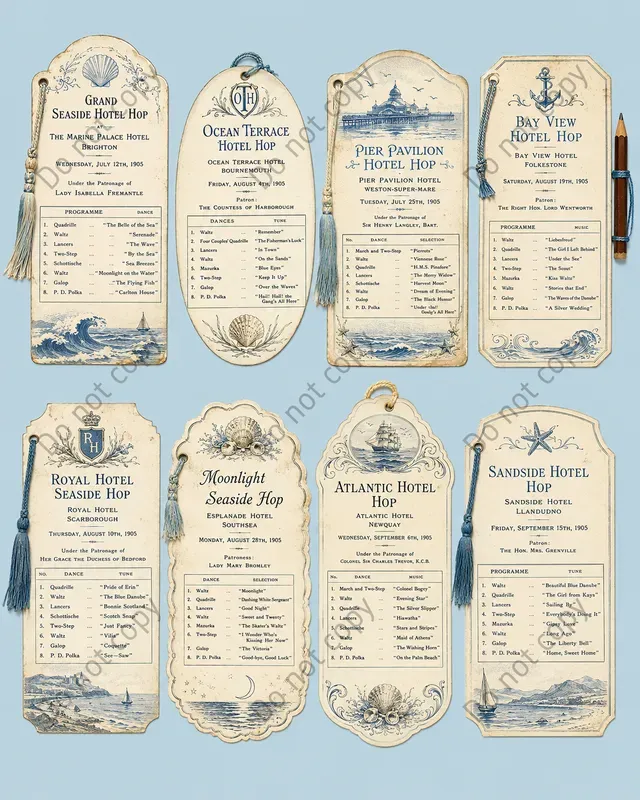 GRAND
SEASIDE HOTEL HOP
AT
THE MARINE PALACE HOTEL
BRIGHTON
WEDNESDAY, JULY 12TH, 1905
Under the Patronage of
LADY ISABELLA FREMANTLE
PROGRAMME DANCE
1. Quadrille ... "The Belle of the Sea"
2. Waltz ... "Serenade"
3. Lancers ... "The Wave"
4. Two-Step ... "By the Sea"
5. Schottische ... "Sea Breezes"
6. Waltz ... "Moonlight on the Water"
7. Galop ... "The Flying Fish"
8. P. D. Polka ... "Carlton House"
OTH
OCEAN TERRACE
HOTEL HOP
OCEAN TERRACE HOTEL
BOURNEMOUTH
FRIDAY, AUGUST 4TH, 1905
Patron:
THE COUNTESS OF HARBOROUGH
DANCES TUNE
1. Waltz ... "Remember"
2. Four Couples' Quadrille ... "The Fisherman's Luck"
3. Lancers ... "In Town"
4. Waltz ... "On the Sands"
5. Mazurka ... "Blue Eyes"
6. Two-Step ... "Keep It Up"
7. Galop ... "Over the Waves"
8. P. D. Polka ... "Hail! Hail! the
Gang's All Here"
PIER PAVILION
HOTEL HOP
PIER PAVILION HOTEL
WESTON-SUPER-MARE
TUESDAY, JULY 25TH, 1905
Under the Patronage of
SIR HENRY LANGLEY, BART.
No. DANCE SELECTION
1. March and Two-Step ... "Pierrots"
2. Waltz ... "Viennese Rose"
3. Quadrille ... "H.M.S. Pinafore"
4. Lancers ... "The Merry Widow"
5. Schottische ... "Harvest Moon"
6. Waltz ... "Dream of Evening"
7. Galop ... "The Black Hussar"
8. P. D. Polka ... "Under the
Gang's All Here"
BAY VIEW
HOTEL HOP
BAY VIEW HOTEL
FOLKESTONE
SATURDAY, AUGUST 19TH, 1905
Patron:
THE RIGHT HON. LORD WENTWORTH
PROGRAMME MUSIC
1. Waltz ... "Liebesfreud"
2. Quadrille ... "The Girl I Left Behind"
3. Lancers ... "Under the Sea"
4. Two-Step ... "The Sonet"
5. Mazurka ... "Kiss Waltz"
6. Waltz ... "Stories that End"
7. Galop ... "The Waves of the Danube"
8. P. D. Polka ... "A Silver Wedding"
RH
ROYAL HOTEL
SEASIDE HOP
ROYAL HOTEL
SCARBOROUGH
THURSDAY, AUGUST 10TH, 1905
Under the Patronage of
HER GRACE THE DUCHESS OF BEDFORD
No. DANCE TUNE
1. Quadrille ... "Pride of Erin"
2. Waltz ... "The Blue Danube"
3. Lancers ... "Bonnie Scotland"
4. Schottische ... "Scotch Snap"
5. Two-Step ... "Just Fancy"
6. Waltz ... "Vilia"
7. Galop ... "Coquette"
8. P. D. Polka ... "See-Saw"
Moonlight
Seaside Hop
ESPLANADE HOTEL
SOUTHSEA
MONDAY, AUGUST 28TH, 1905
Patroness:
LADY MARY BROMLEY
DANCE SELECTION
1. Waltz ... "Moonlight"
2. Quadrille ... "Dashing White Sergeant"
3. Lancers ... "Good Night"
4. Waltz ... "Sweet and Twenty"
5. Mazurka ... "The Skater's Waltz"
6. Two-Step ... "I Wonder Who's
Kissing Her Now"
7. Galop ... "The Victoria"
8. P. D. Polka ... "Good-bye, Good Luck"
ATLANTIC HOTEL
HOP
ATLANTIC HOTEL
NEWQUAY
WEDNESDAY, SEPTEMBER 6TH, 1905
Under the Patronage of
COLONEL SIR CHARLES TREVOR, K.C.B.
No. DANCE MUSIC
1. March and Two-Step ... "Colonel Bogey"
2. Waltz ... "Evening Star"
3. Quadrille ... "The Silver Slipper"
4. Lancers ... "Hiawatha"
5. Schottische ... "Stars and Stripes"
6. Waltz ... "Maid of Athens"
7. Galop ... "The Wishing Horn"
8. P. D. Polka ... "On the Palm Beach"
SANDSIDE HOTEL
HOP
SANDSIDE HOTEL
LLANDUDNO
FRIDAY, SEPTEMBER 15TH, 1905
Patron:
THE HON. MRS. GRENVILLE
PROGRAMME TUNE
1. Waltz ... "Beautiful Blue Danube"
2. Quadrille ... "The Girl from Kays"
3. Lancers ... "Sailing By"
4. Two-Step ... "Everybody's Doing It"
5. Mazurka ... "Gipsy Love"
6. Waltz ... "Long Ago"
7. Galop ... "The Liberty Bell"
8. P. D. Polka ... "Home, Sweet Home"
Do not copy
Do not copy
Do not copy
Do not copy
Do not copy
Do not copy
Do not copy
Do not copy